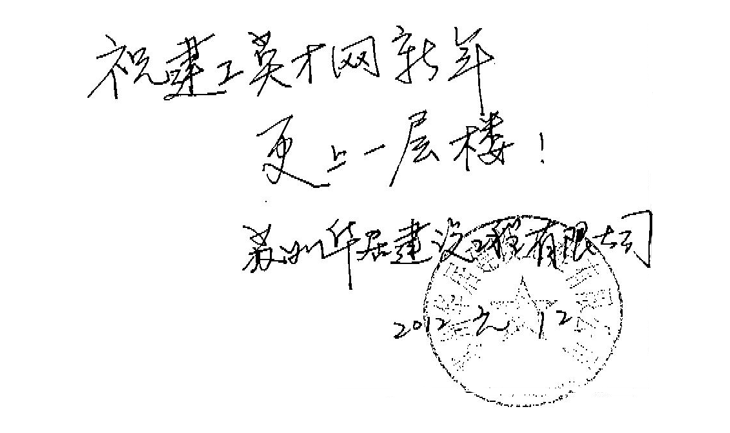 祝建工英才网新年
更上一层楼！
苏州华居建设工程有限公司
2012.元.12